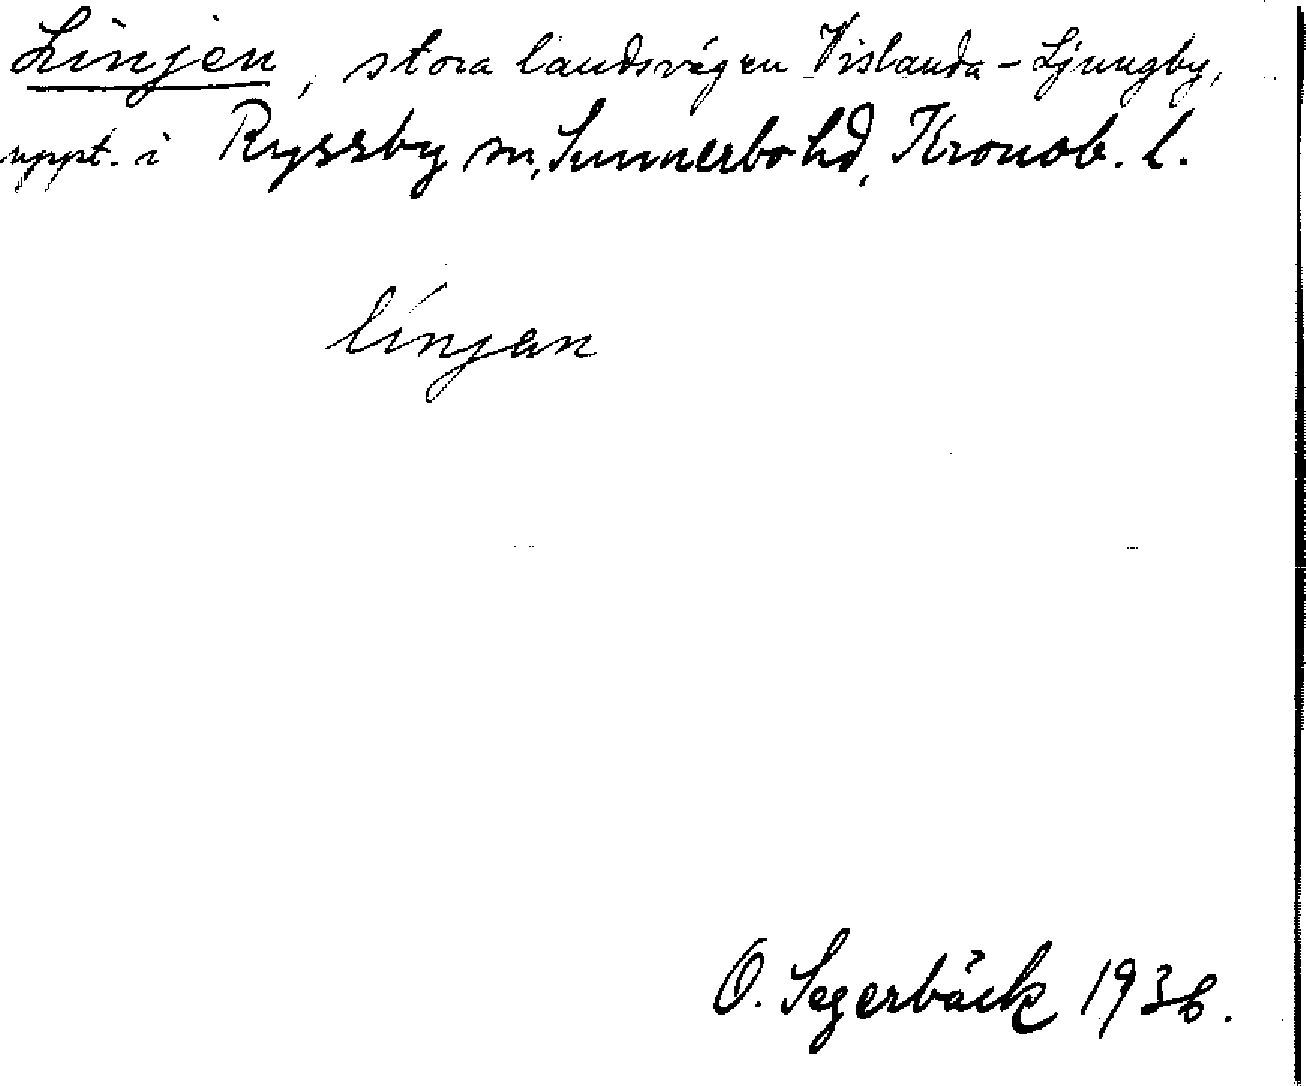 Linjen, stora landsvägen Vislanda - Ljungby,
uppt. i Ryssby sn, Sunnerbo hd, Kronob. l.
línjan
O. Segerbäck 1936.